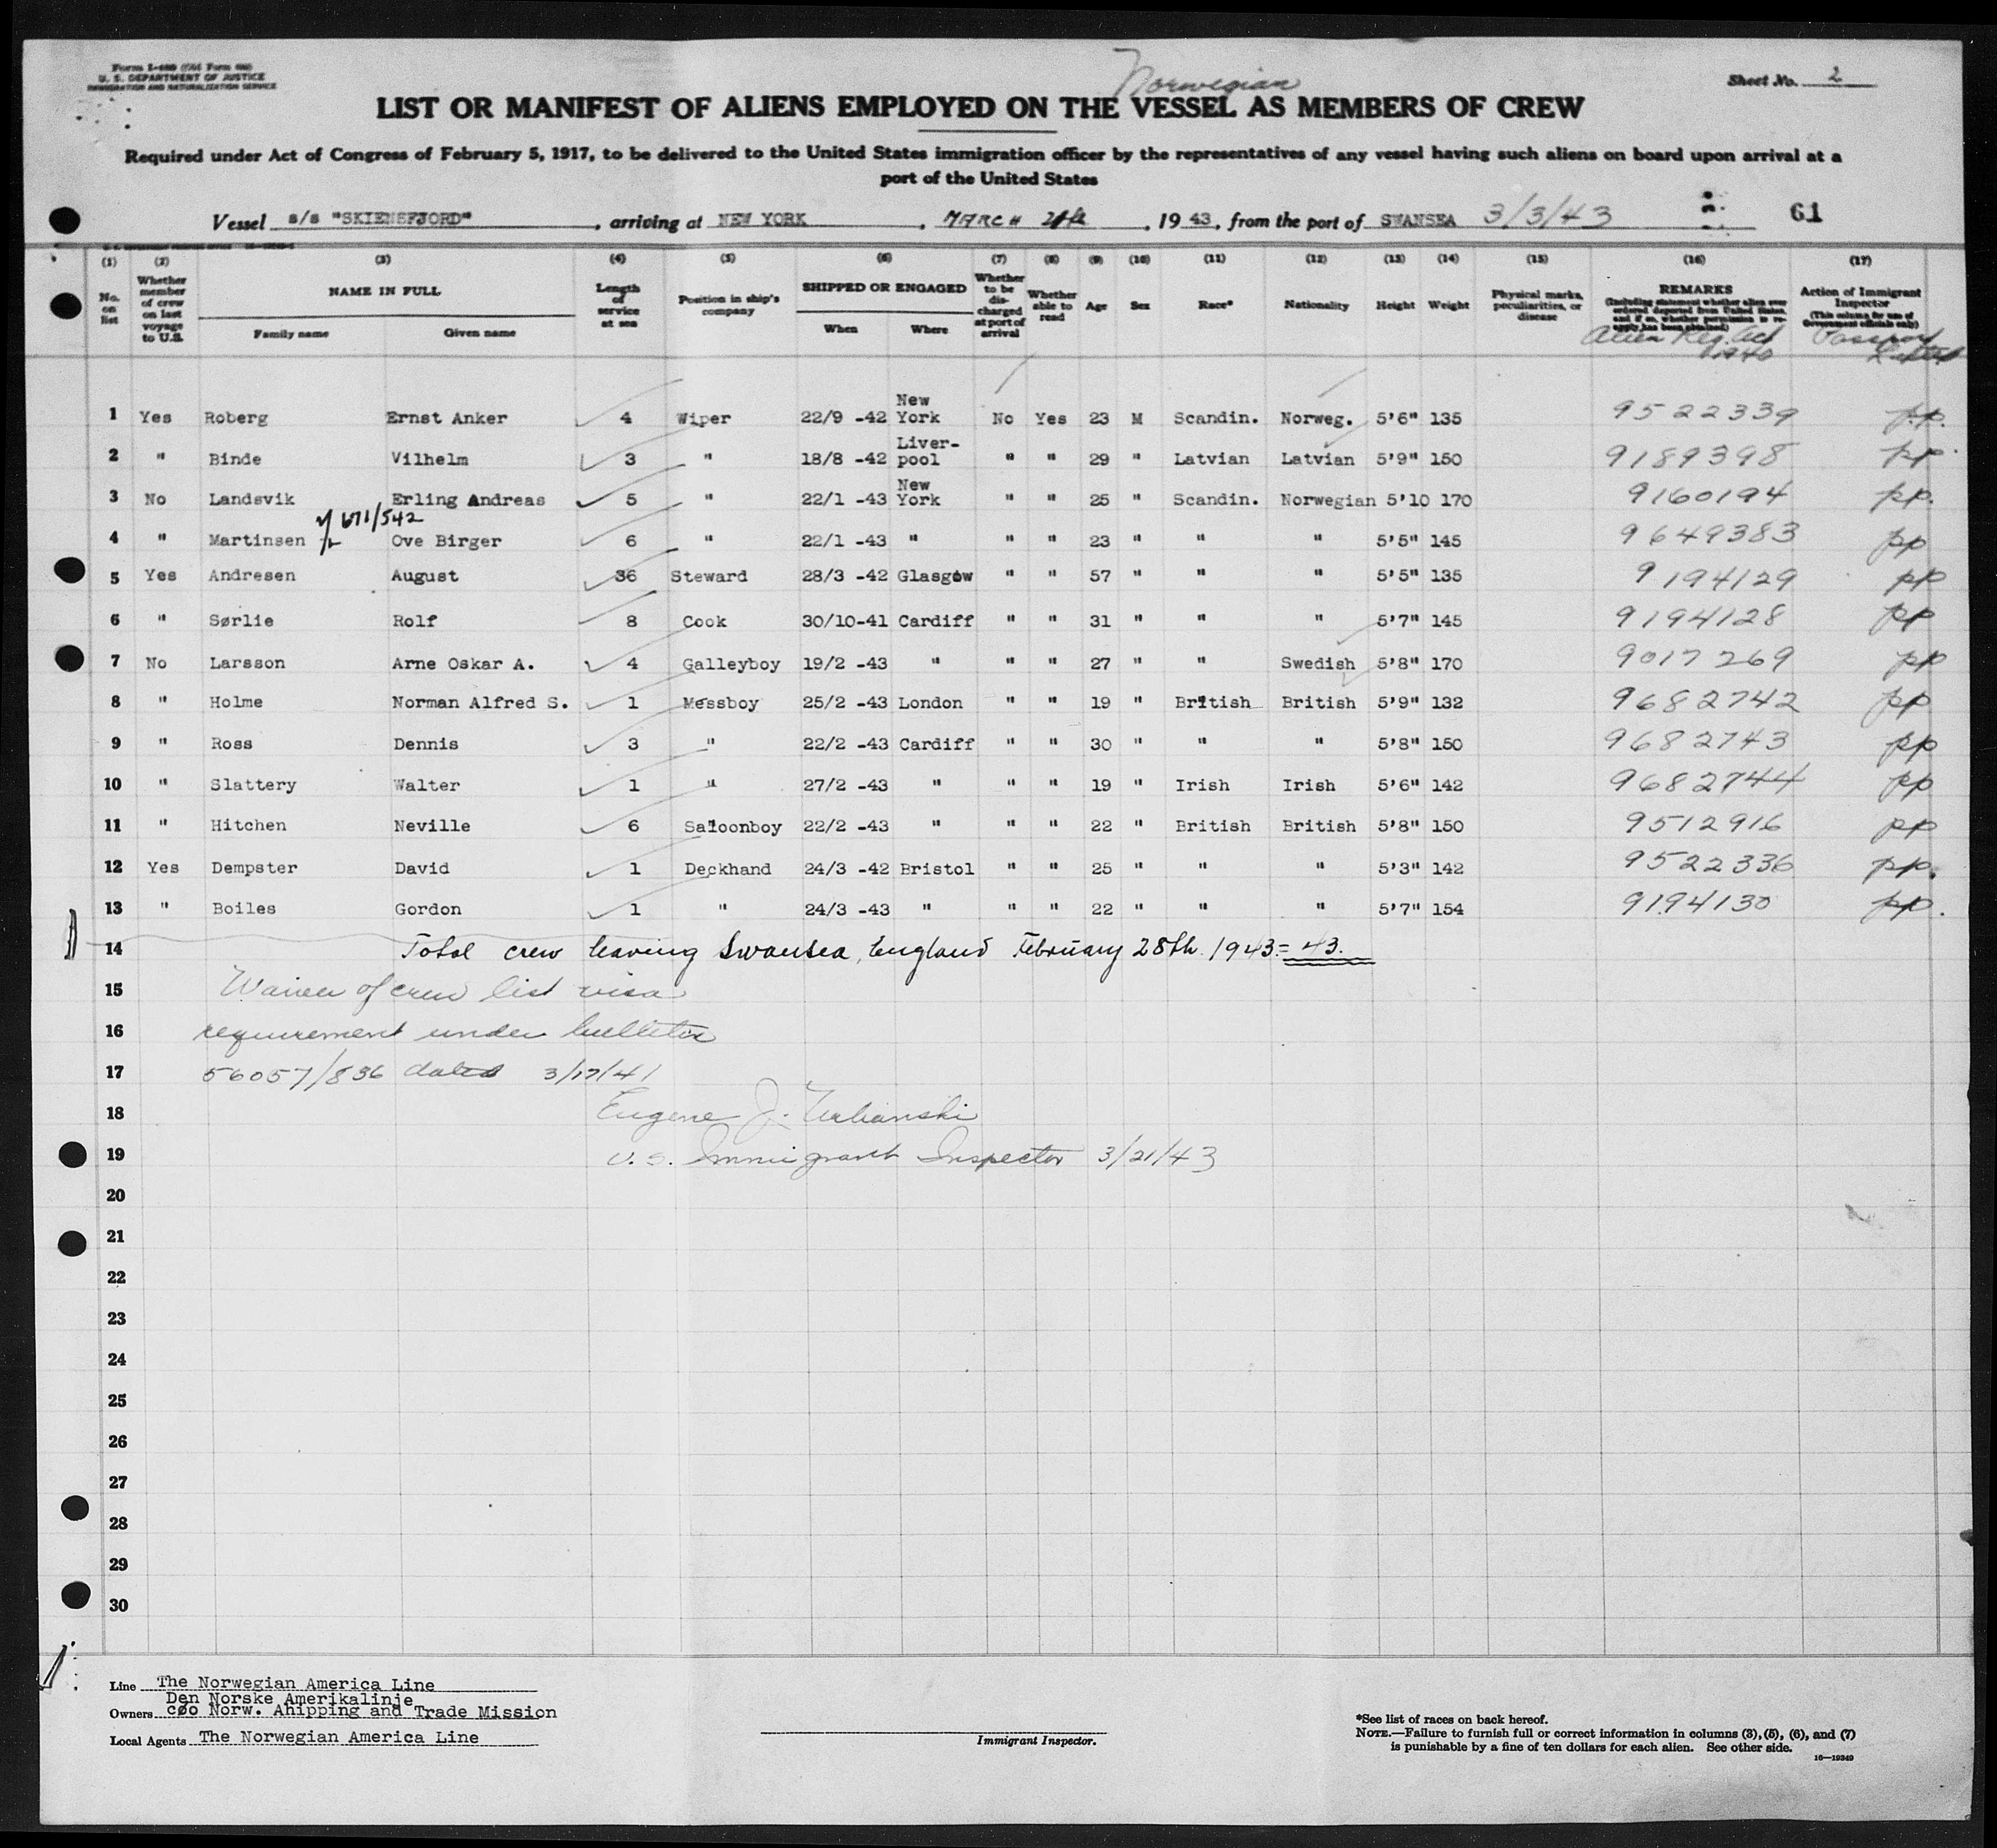 Form I-480 (Old Form 680)
U. S. DEPARTMENT OF JUSTICE
IMMIGRATION AND NATURALIZATION SERVICE
Norwegian
Sheet No. 2
LIST OR MANIFEST OF ALIENS EMPLOYED ON THE VESSEL AS MEMBERS OF CREW
Required under Act of Congress of February 5, 1917, to be delivered to the United States immigration officer by the representatives of any vessel having such aliens on board upon arrival at a
port of the United States
Vessel s/s "SKIENSFJORD", arriving at NEW YORK, MARCH 21st, 1943, from the port of SWANSEA 3/3/43 61
(1) (2) (3) (4) (5) (6) (7) (8) (9) (10) (11) (12) (13) (14) (15) (16) (17)
No. on list
Whether member of crew on last voyage to U.S.
NAME IN FULL
Family name
Given name
Length of service at sea
Position in ship's company
SHIPPED OR ENGAGED
When
Where
Whether to be discharged at port of arrival
Whether able to read
Age
Sex
Race*
Nationality
Height
Weight
Physical marks, peculiarities, or disease
REMARKS
(Including statement whether alien ever ordered deported from United States, and if so, whether permission to reapply has been obtained)
Alien Reg. Act 1940
Action of Immigrant Inspector
(This column for use of Government officials only)
Passport
1 Yes Roberg Ernst Anker 4 Wiper 22/9 -42 New York No Yes 23 M Scandin. Norweg. 5'6" 135 9522339 p.p.
2 " Binde Vilhelm 3 " 18/8 -42 Liver-pool " " 29 " Latvian Latvian 5'9" 150 9189398 pp
3 No Landsvik Erling Andreas 5 " 22/1 -43 New York " " 25 " Scandin. Norwegian 5'10 170 9160194 pp.
671/542
4 " Martinsen Ove Birger 6 " 22/1 -43 " " " 23 " " " 5'5" 145 9649383 pp
5 Yes Andresen August 36 Steward 28/3 -42 Glasgow " " 57 " " " 5'5" 135 9194129 pp
6 " Sørlie Rolf 8 Cook 30/10-41 Cardiff " " 31 " " " 5'7" 145 9194128 pp
7 No Larsson Arne Oskar A. 4 Galleyboy 19/2 -43 " " " 27 " " Swedish 5'8" 170 9017269 pp
8 " Holme Norman Alfred S. 1 Messboy 25/2 -43 London " " 19 " British British 5'9" 132 9682742 pp
9 " Ross Dennis 3 " 22/2 -43 Cardiff " " 30 " " " 5'8" 150 9682743 pp
10 " Slattery Walter 1 " 27/2 -43 " " " 19 " Irish Irish 5'6" 142 9682744 pp
11 " Hitchen Neville 6 Saloonboy 22/2 -43 " " " 22 " British British 5'8" 150 9512916 pp
12 Yes Dempster David 1 Deckhand 24/3 -42 Bristol " " 25 " " " 5'3" 142 9522336 pp.
13 " Boiles Gordon 1 " 24/3 -43 " " " 22 " " " 5'7" 154 9194130 pp.
14 Total crew leaving Swansea, England February 28th 1943 = 43.
15 Waiver of crew list visa
16 requirement under bulletin
17 56057/836 dated 3/17/41
18 Eugene J.
19 U. S. Immigrant Inspector 3/21/43
20
21
22
23
24
25
26
27
28
29
30
Line The Norwegian America Line
Den Norske Amerikalinje
Owners cøo Norw. Ahipping and Trade Mission
Local Agents The Norwegian America Line
Immigrant Inspector.
*See list of races on back hereof.
NOTE.—Failure to furnish full or correct information in columns (3), (5), (6), and (7)
is punishable by a fine of ten dollars for each alien. See other side.
16—19349